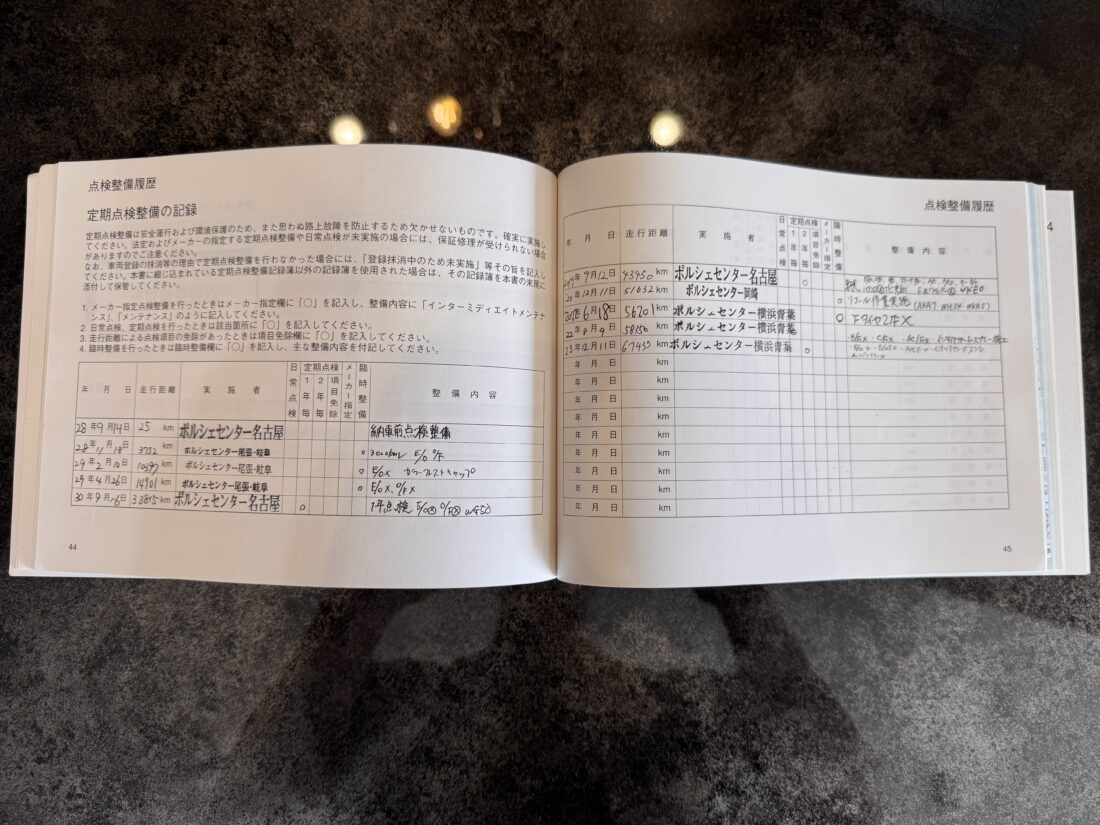 点検整備履歴
定期点検整備の記録
定期点検整備は安全運行および環境保護のため、また思わぬ路上故障を防止するため欠かせないものです。確実に実施し
てください。法定およびメーカーの指定する定期点検整備や日常点検が未実施の場合には、保証修理が受けられない場合
がありますのでご注意ください。
なお、車両登録の抹消等の理由で定期点検整備を行わなかった場合には、「登録抹消中のため未実施」等その旨を記入し
てください。本書に綴じ込まれている定期点検整備記録簿以外の記録簿を使用された場合は、その記録簿を本書の末尾に
添付して保管してください。
1. メーカー指定点検を行ったときはメーカー指定欄に「〇」を記入し、整備内容に「インターミディエイトメンテナ
ンス」、「メンテナンス」のように記入してください。
2. 日常点検、定期点検を行ったときは該当箇所に「〇」を記入してください。
3. 走行距離による点検項目の免除があったときは項目免除欄に「〇」を記入してください。
4. 臨時整備を行ったときは臨時整備欄に「〇」を記入し、主な整備内容を付記してください。
年 月 日 走行距離 実施者 日常点検 定期点検 1年毎 2年毎 項目免除 メーカー指定 臨時整備 整備内容
28年9月14日 25 km ポルシェセンター名古屋 納車前点検整備
28年11月18日 3752 km ポルシェセンター尾張・岐阜 ○ E/O O/F
29年2月10日 10397 km ポルシェセンター尾張・岐阜 ○ E/O X
29年4月26日 14901 km ポルシェセンター尾張・岐阜 ○ E/O X、O/F X
30年9月16日 33815 km ポルシェセンター名古屋 ○ 1年点検 E/O O/F
44
点検整備履歴
年 月 日 走行距離 実施者 日常点検 定期点検 1年毎 2年毎 項目免除 メーカー指定 臨時整備 整備内容
年9月12日 43450 km ポルシェセンター名古屋 ○
20年12月11日 51632 km ポルシェセンター岡崎 ○ リコール作業実施
年6月18日 56201 km ポルシェセンター横浜青葉 ○
22年8月9日 58150 km ポルシェセンター横浜青葉
23年12月11日 67435 km ポルシェセンター横浜青葉 ○
年 月 日 km
年 月 日 km
年 月 日 km
年 月 日 km
年 月 日 km
年 月 日 km
年 月 日 km
年 月 日 km
45
4